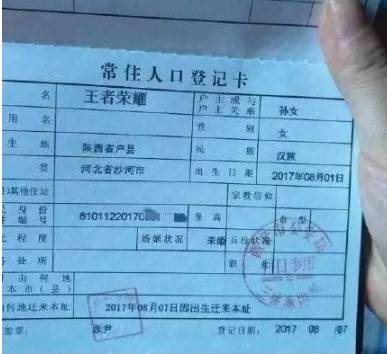 常住人口登记卡
名 王者荣耀 户主或与户主关系 孙女
用名 性别 女
生地 陕西省户县 民族 汉族
贯 河北省沙河市 出生日期 2017年08月01日
其他住址 宗教信仰
身份编号 6101122017 身高 血型
化程度 婚姻状况 未婚 兵役状况
务处所 职业
由何地
本市(县)
何地迁来本址 2017年08月07日因出生迁来本址
签章: 登记日期: 2017 08 07